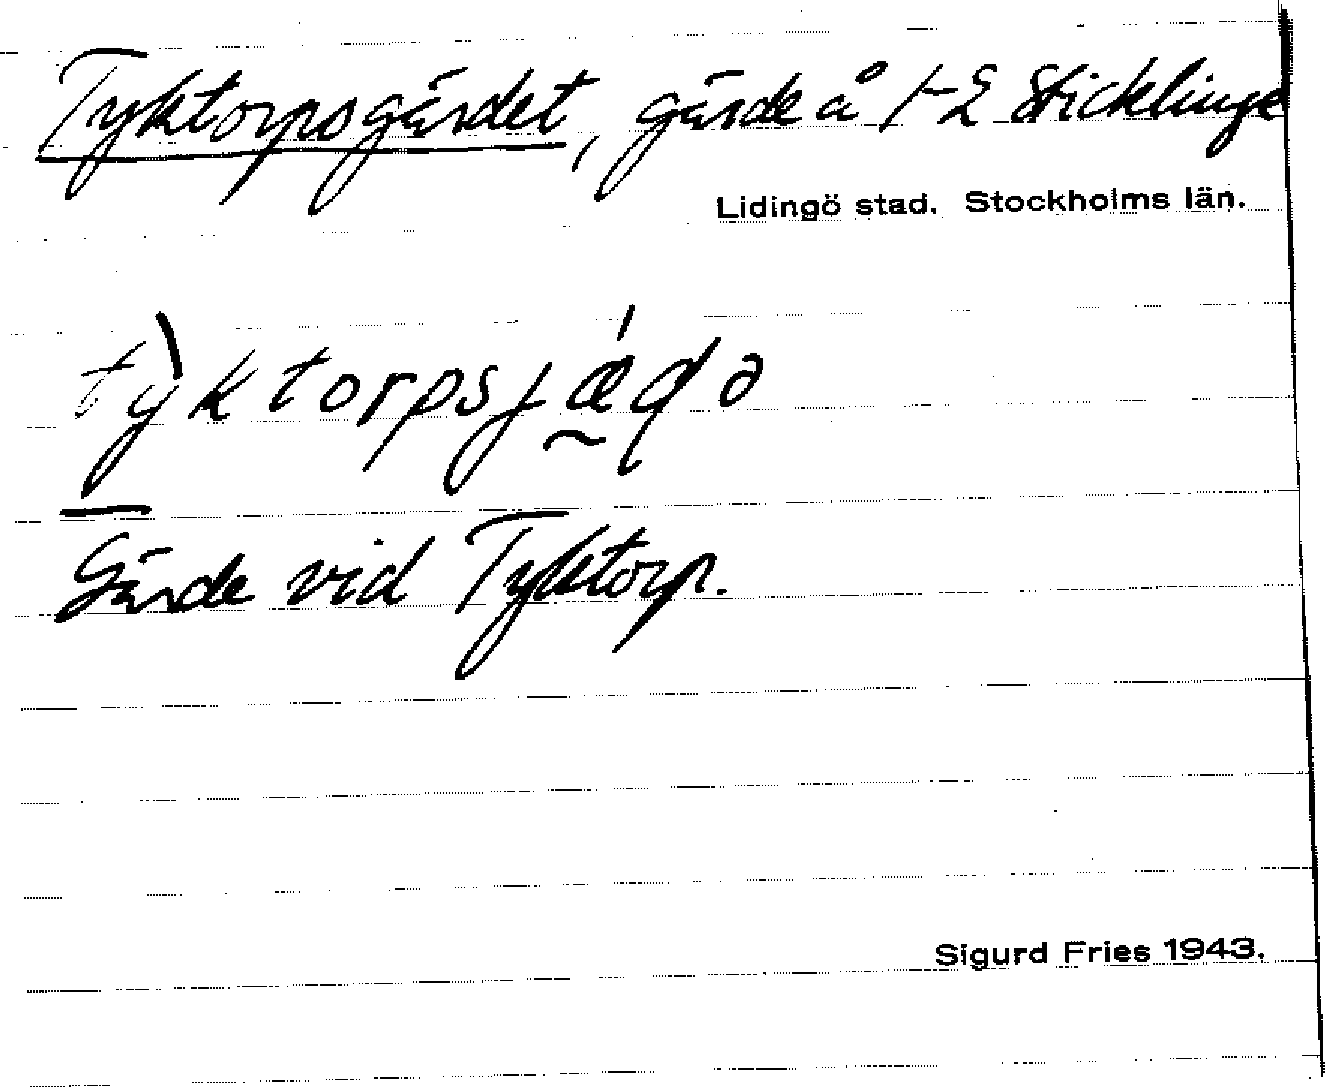 Tyktorpsgärdet, gärde å 1-2 Sticklinge
Lidingö stad. Stockholms län.
ty̆̀ktorpsjǽɖə
Gärde vid Tyktorp.
Sigurd Fries 1943.